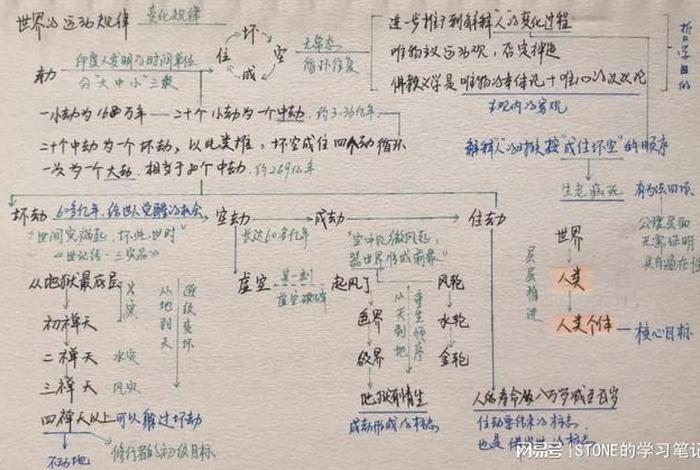 世界的运动规律
变化规律
坏
住 空
成
无常态
循环往复
进一步推导到解释人的变化过程
唯物主义运动观，否定神造
佛教哲学是唯物的本体论+唯心的次次论
主观内的客观
哲学目的
劫
印度人发明的时间单位
分"大中小"三类
一小劫为1680万年
二十个小劫为一个中劫
约3.36亿年
二十个中劫为一个坏劫，以此类推，坏空成住四个劫循环
一次为一个大劫，相当于80个中劫
约269亿年
解释人的时候按"成住坏空"的顺序
生老病死
坏劫
60多亿年，给世人觉醒的机会
空劫
成劫
住劫
"世间灾初起，坏此世时"
《世记经·三灾品》
长达60多亿年
"空中
微风起，
器世界
成前兆"
从地狱最底层
初禅天
二禅天
三禅天
四禅天以上可以躲过坏劫
不动地
修行者的初级目标
火灾
水灾
风灾
从地到天
逐级变坏
虚空
某一刻
虚空破碎
起风了
色界
欲界
地狱有情生
成劫形成的标志
从天到地
重生顺序
风轮
水轮
金轮
世界
人类
人类个体
核心目标
层层推进
公理层面
无需证明
人的寿命从八万岁减至百岁
住劫要结束的标志
网易号 | STONE的学习笔记